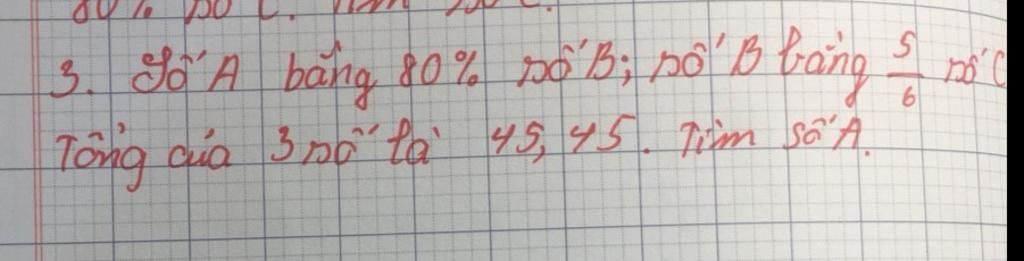 80% số C.
3. Số A bằng 80% số B; số B bằng 5/6 số C
Tổng của 3 số là 45,45. Tìm số A.